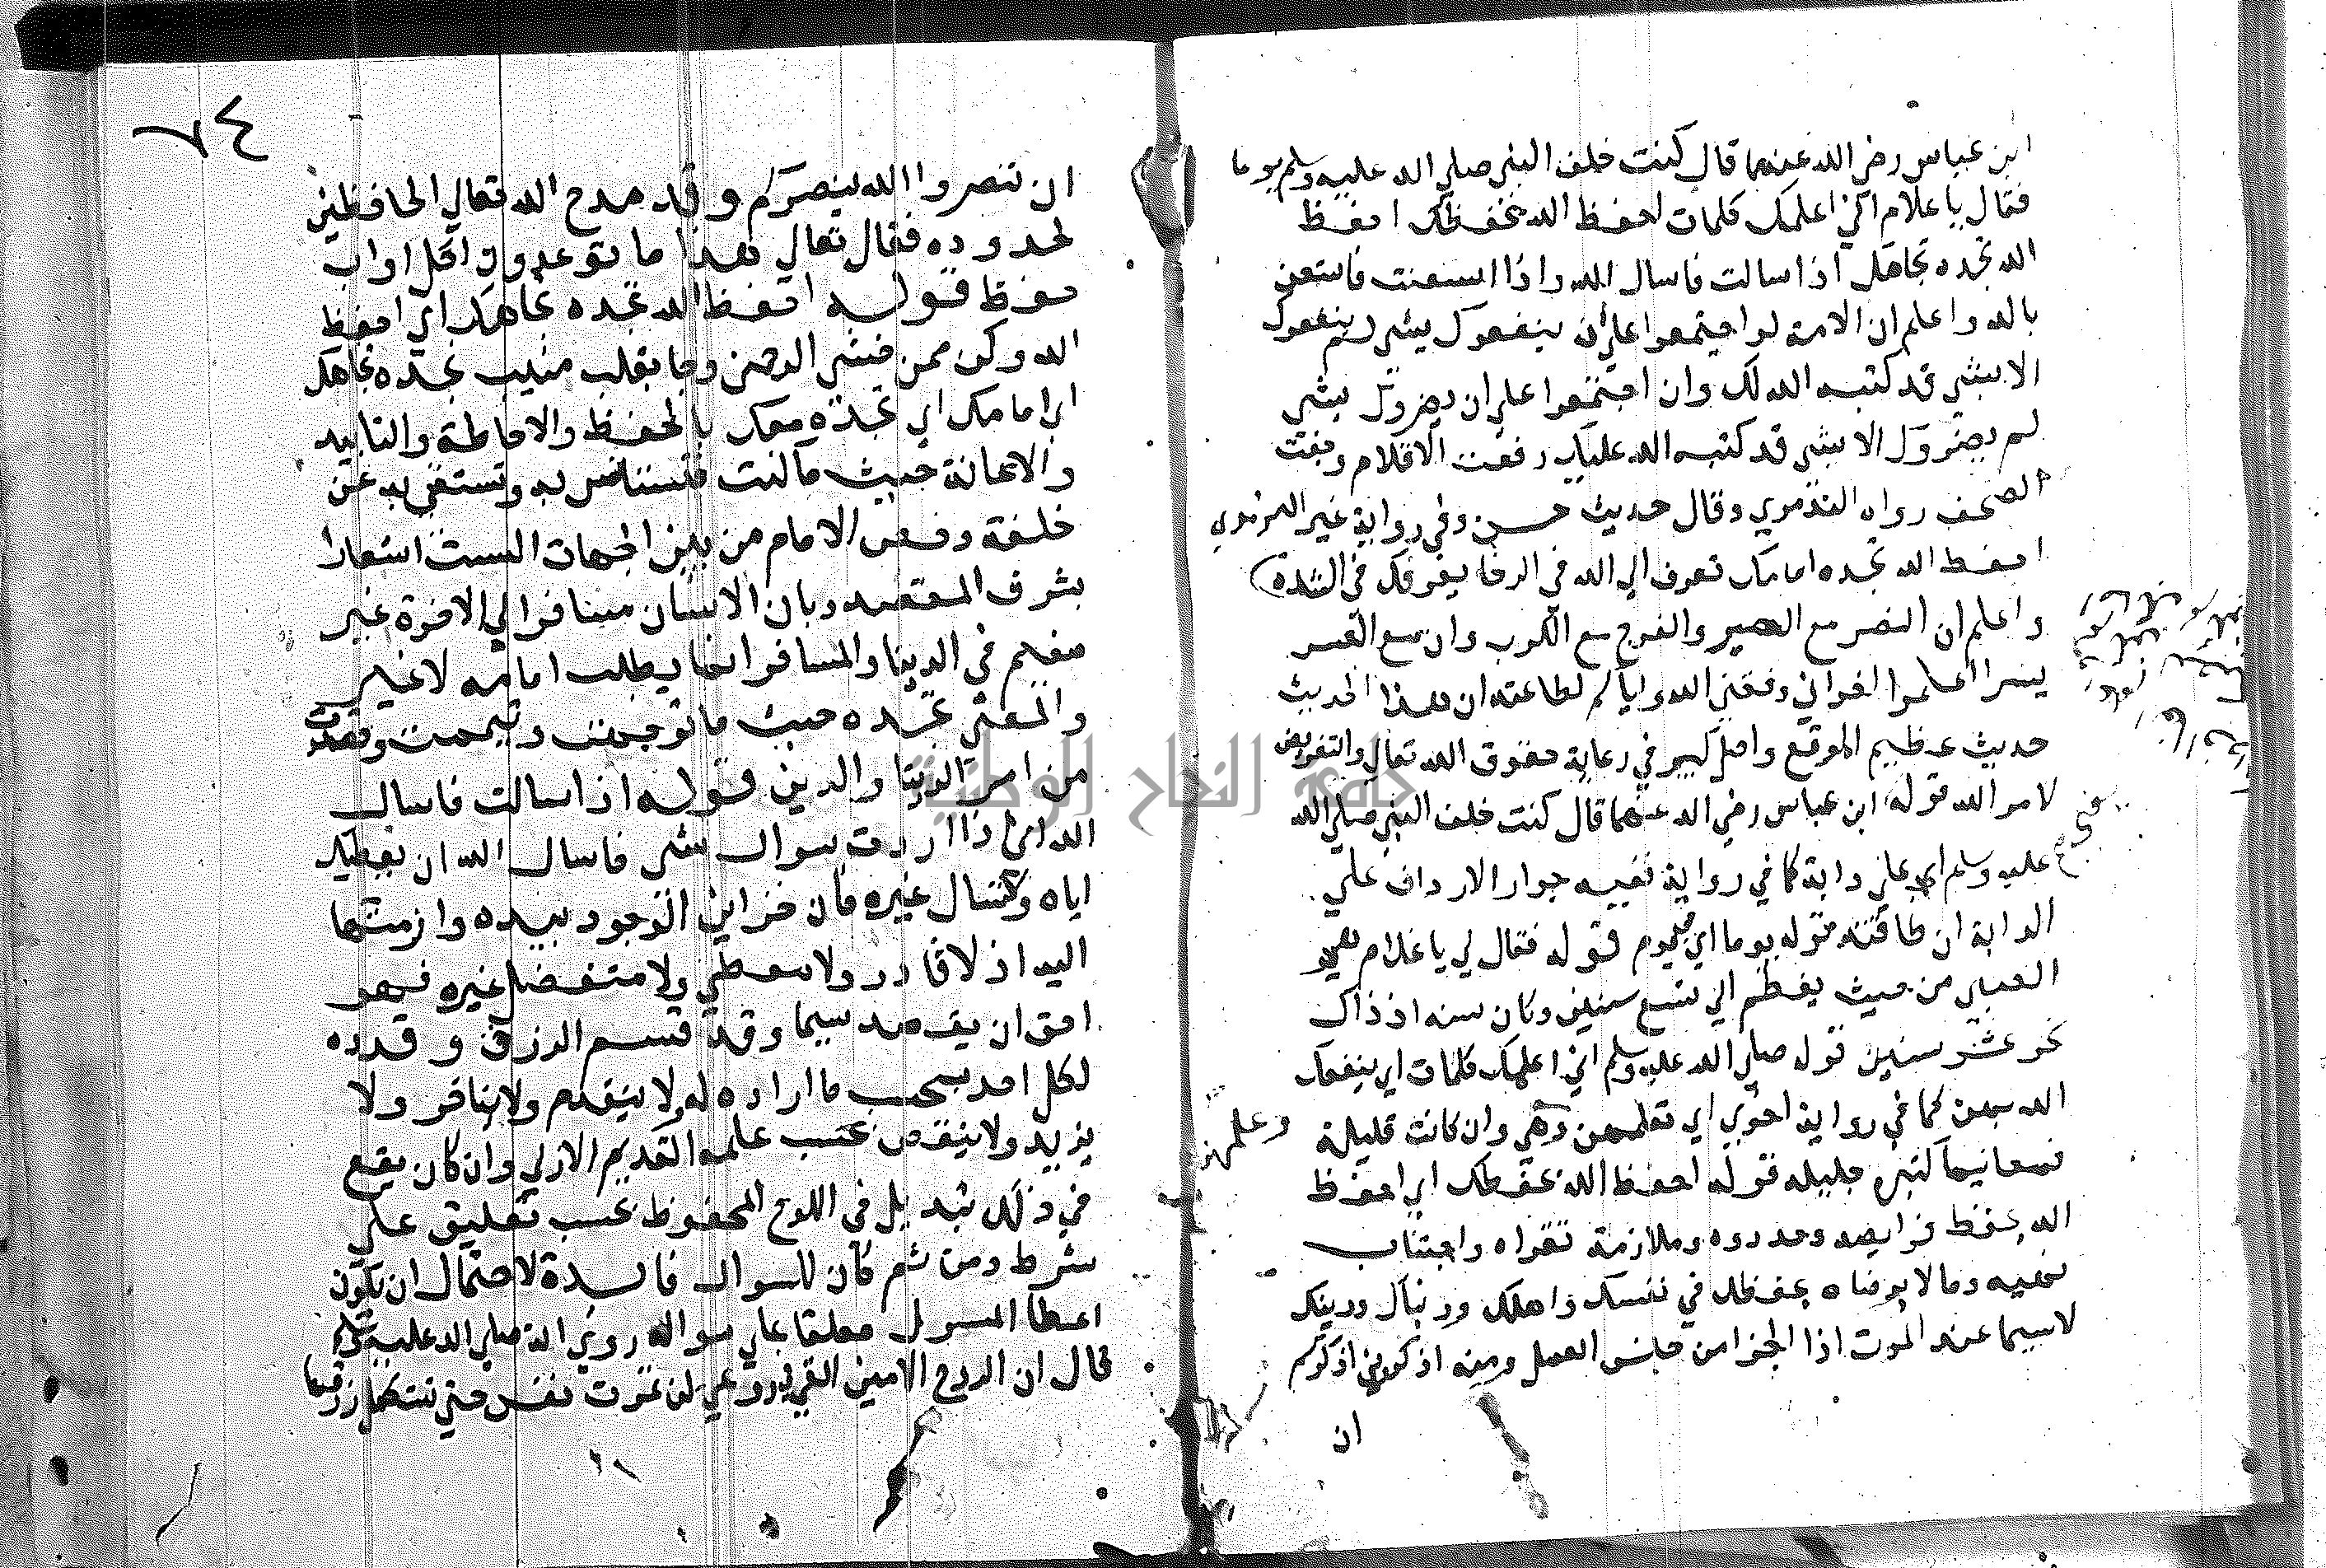 ابن عباس رضي الله عنهما قال كنت خلف النبي صلي الله عليه وسلم يوما
فقال يا غلام اني اعلمك كلمات احفظ الله يحفظك احفظ
الله تجده تجاهك اذا سالت فاسال الله واذا استعنت فاستعن
بالله واعلم ان الامة لو اجتمعوا علي ان ينفعوك بشي لم ينفعوك
الا بشي قد كتبه الله لك وان اجتمعوا علي ان يضروك بشي
لم يضروك الا بشي قد كتبه الله عليك رفعت الاقلام وجفت
الصحف رواه الترمذي وقال حديث حسن وفي رواية غير الترمذي
احفظ الله تجده امامك تعرف الي الله في الرخا يعرفك في الشدة
واعلم ان النصر مع الصبر والفرج مع الكرب وان مع العسر
يسرا اعلموا اخواني وفقني الله واياكم لطاعته ان هذا الحديث
حديث عظيم الموقع واصل كبير في رعاية حقوق الله تعالي والتفويض
لامر الله قوله ابن عباس رضي الله عنهما قال كنت خلف النبي صلي الله
عليه وسلم اي علي دابة كما في رواية ففيه جواز الارداف علي
الدابة ان طاقته قوله يوما اي في يوم قوله فقال لي يا غلام هو
الصبي من حيث يفطم الي تسع سنين وكان سنه اذ ذاك
نحو عشر سنين قوله صلي الله عليه وسلم اني اعلمك كلمات اي ينفعك
الله بهن كما في رواية اخري اي تعلمهن وهي وان كانت قليلة
وعلمهن
فمعانيها كثيرة جليله قوله احفظ الله يحفظك اي احفظ
الله بحفظ فرايضه وحدوده وملازمة تقواه واجتناب
نهيه وما لا يرضاه يحفظك في نفسك واهلك ودنياك ودينك
لاسيما عند الموت اذا الجزا من جنس العمل ومنه اذكروني اذكركم
ان
٧٤
ان تنصروا الله ينصركم وقد مدح الله تعالي الحافظين
لحدوده فقال تعالي هذا ما توعدون لكل اواب
حفيظ قوله احفظ الله تجده تجاهك اي احفظ
الله وكن ممن خشي الرحمن وجا بقلب منيب تجده تجاهك
اي امامك اي تجده معك بالحفظ والاحاطة والتاييد
والاعانة حيث ما كنت فتستانس به وتستغني به عن
خلقه وخص الامام من بين الجهات الست اشعارا
بشرف المقصد وبان الانسان مسافر الي الاخرة غير
مقيم في الدنيا والمسافر انما يطلب امامه لا غير
والمعني تجده حيث ما توجهت وتيممت وقصدت
من امر الدنيا والدين قوله اذا سالت فاسال
الله اي اذا اردت سوال شي فاسال الله ان يعطيك
اياه ولا تسال غيره فان خزاين الجود بيده وازمتها
اليه اذ لا قادر ولا معطي ولا متفضل غيره فهو
احق ان يقصد سيما وقد قسم الرزق وقدره
لكل احد بحسب ما اراده له لا يتقدم ولا يتاخر ولا
يزيد ولا ينقص بحسب علمه القديم الازلي وان كان يقع
في ذلك تبديل في اللوح المحفوظ بحسب تعليق علي
شرط ومن ثم كان للسوال فايدة لاحتمال ان يكون
اعطا المسول معلقا علي سواله روي انه صلي الله عليه وسلم
قال ان الروح الامين القي في روعي لن تموت نفس حتي تستكمل رزقها
جامعة النجاح الوطنية